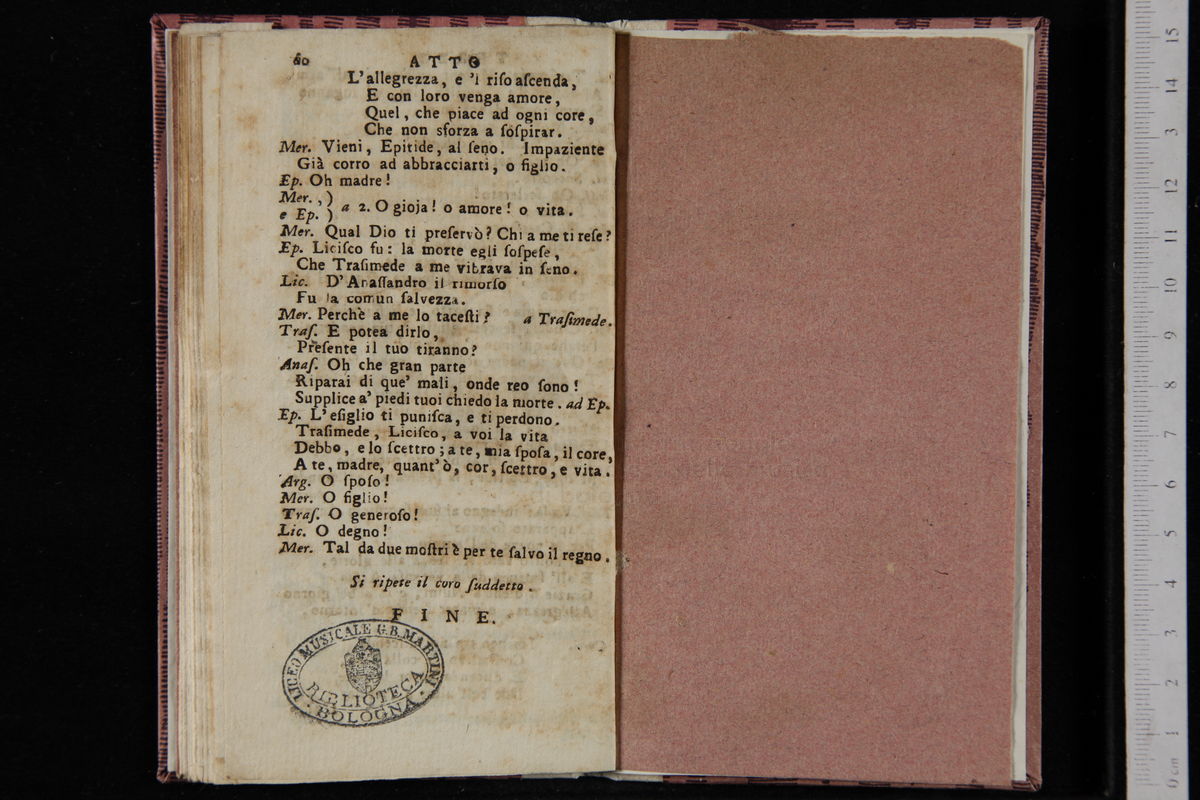 60 ATTO
L'allegrezza, e 'l riſo aſcenda,
E con loro venga amore,
Quel, che piace ad ogni core,
Che non sforza a ſoſpirar.
Mer. Vieni, Epitide, al ſeno. Impaziente
Già corro ad abbracciarti, o figlio.
Ep. Oh madre!
Mer., )
e Ep. ) a 2. O gioja! o amore! o vita.
Mer. Qual Dio ti preſervò? Chi a me ti reſe?
Ep. Liciſco fu: la morte egli ſoſpeſe,
Che Traſimede a me vibrava in ſeno.
Lic. D'Anaſſandro il rimorſo
Fu la comun ſalvezza.
Mer. Perchè a me lo taceſti? a Traſimede.
Traſ. E potea dirlo,
Preſente il tuo tiranno?
Anaſ. Oh che gran parte
Riparai di que' mali, onde reo ſono!
Supplice a' piedi tuoi chiedo la morte. ad Ep.
Ep. L'eſiglio ti puniſca, e ti perdono.
Traſimede, Liciſco, a voi la vita
Debbo, e lo ſcettro; a te, mia ſpoſa, il core,
A te, madre, quant' ò, cor, ſcettro, e vita.
Arg. O ſpoſo!
Mer. O figlio!
Traſ. O generoſo!
Lic. O degno!
Mer. Tal da due moſtri è per te ſalvo il regno.
Si ripete il coro ſuddetto.
FINE.
LICEO MUSICALE G.B. MARTINI
BIBLIOTECA
· BOLOGNA ·
0 cm 1 2 3 4 5 6 7 8 9 10 11 12 13 14 15